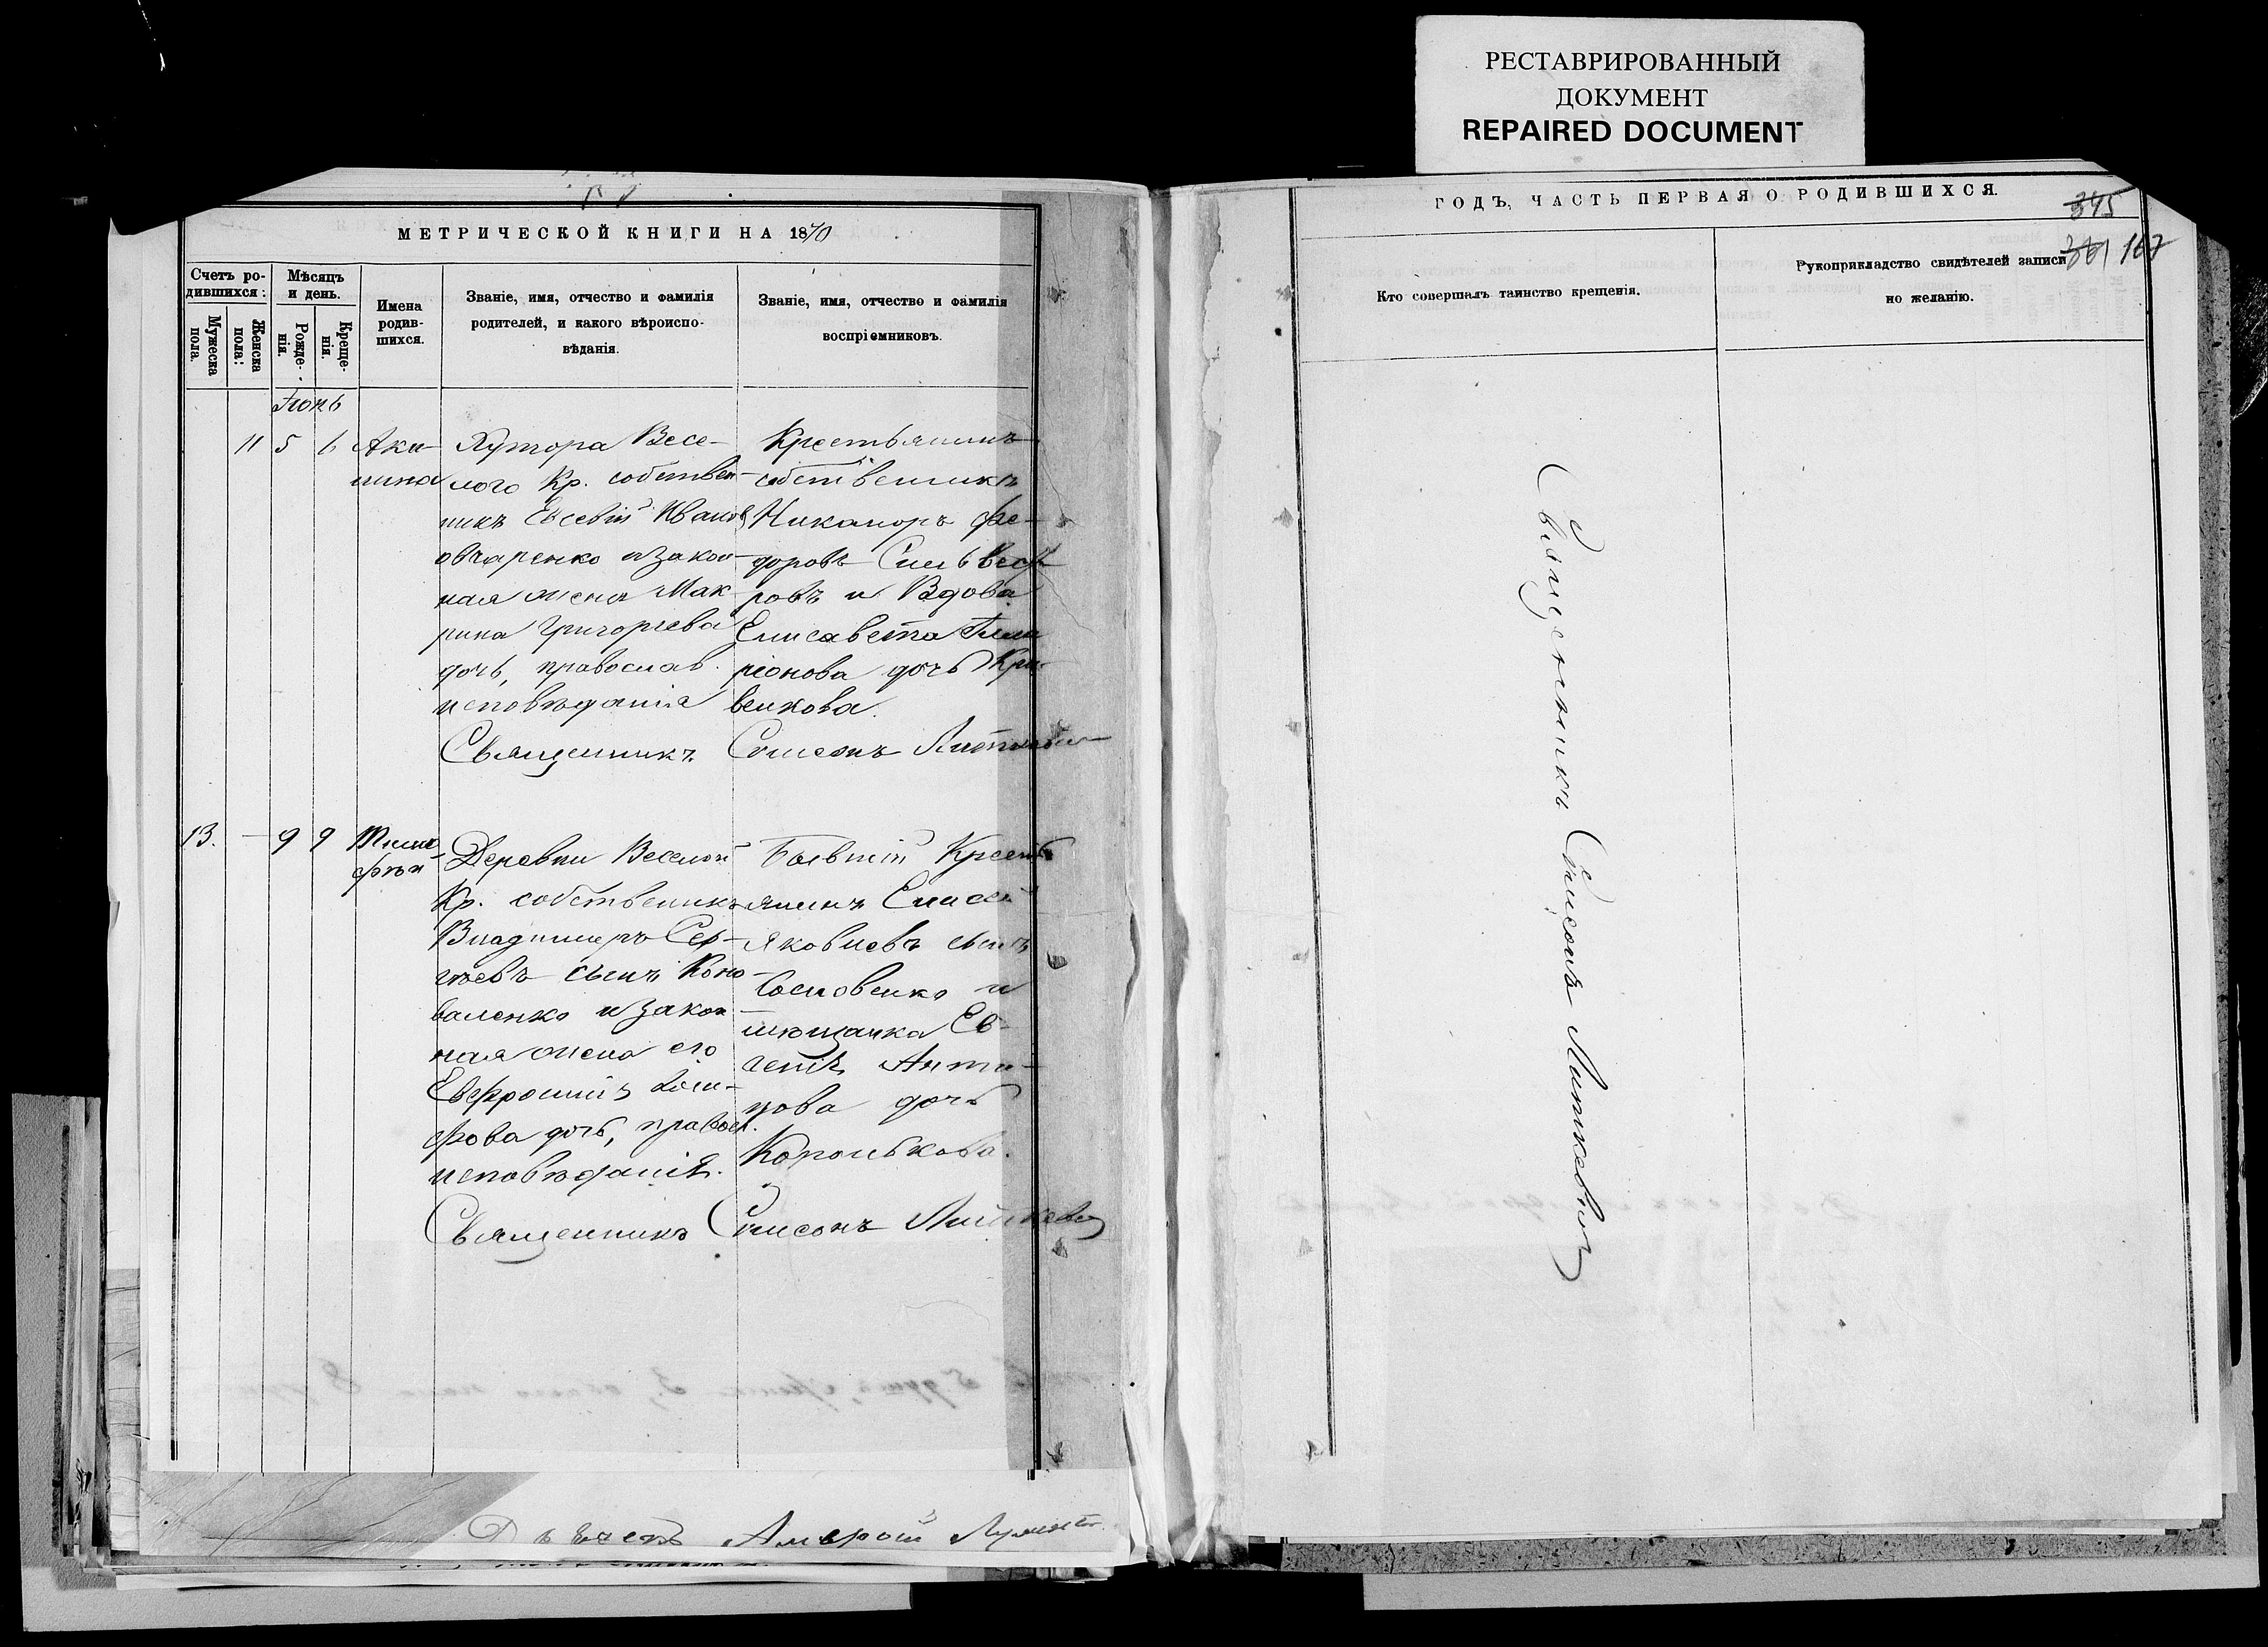 РЕСТАВРИРОВАННЫЙ
ДОКУМЕНТ
REPAIRED DOCUMENT
МЕТРИЧЕСКОЙ КНИГИ НА 1870
Счетъ ро-
дившихся:
Мужеска
пола.
Женска
пола:
Мѣсяцъ
и день.
Рожде-
нія.
Креще-
нія.
Имена
родив-
шихся.
Званіе, имя, отчество и фамилія
родителей, и какого вѣроиспо-
вѣданія.
Званіе, имя, отчество и фамилія
воспріемниковъ.
Іюнь
11 5 6
Аки-
лина
Хутора Весе-
лого Кр. собствен-
никъ Евсевій Иванов
овчаренко и закон-
ная жена Мак-
рина Григорьева
дочь, православ.
исповѣданія
Крестьянинъ
собственникъ
Никаноръ Фе-
доровъ Сильвест
ровъ и Вдова
Елисавета
ріонова дочь Кри-
венкова.
Священникъ Симеонъ
13. — 9 9
Тимо
фѣй
Деревни Веселой
Кр. собственникъ
Владимиръ Сер-
гѣевъ сынъ Коно-
валенко и закон-
ная жена его
Евфросинія Іоси-
фова дочь, правосл.
исповѣданія.
Бывшій Крест
янинъ Елисей
Яковлевъ сынъ
и
мѣщанка Ев-
генія Анти-
пова дочь
Королькова.
Священникъ Симеонъ Литкевич
Амвросій
ГОДЪ, ЧАСТЬ ПЕРВАЯ О РОДИВШИХСЯ.
345
361 167
Кто совершалъ таинство крещенія.
Рукоприкладство свидѣтелей записи
по желанію.
Священникъ Симеонъ Литкевич